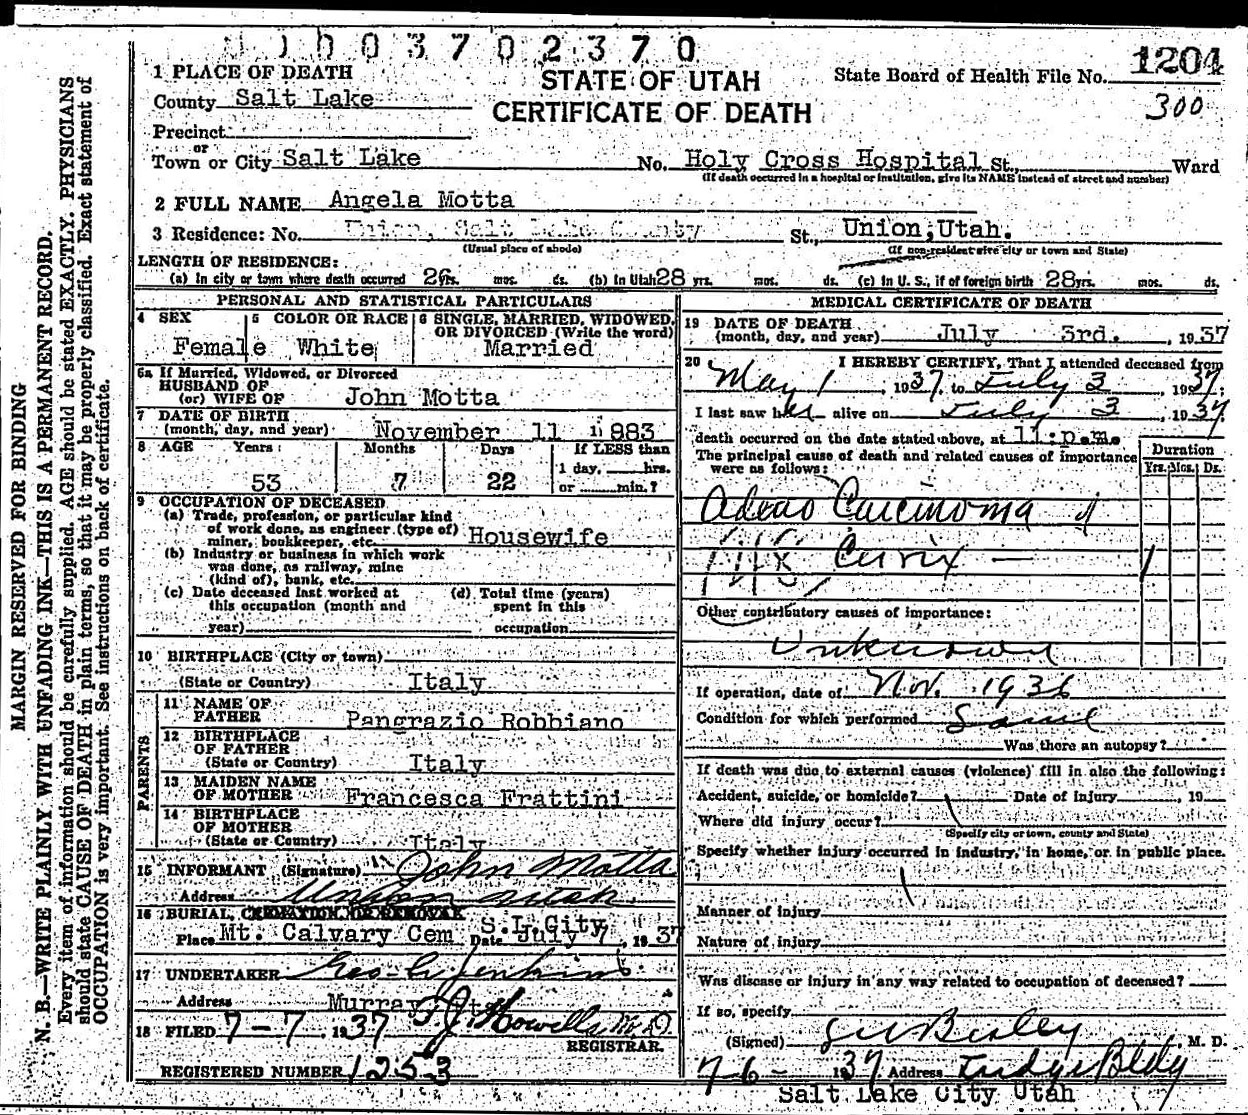 0 0 3 7 0 2 3 7 0
STATE OF UTAH
CERTIFICATE OF DEATH
State Board of Health File No. 1204
300
1 PLACE OF DEATH
County Salt Lake
Precinct
or
Town or City Salt Lake No. Holy Cross Hospital St., Ward
(If death occurred in a hospital or institution, give its NAME instead of street and number)
2 FULL NAME Angela Motta
3 Residence: No. Union, Salt Lake County St., Union, Utah.
(Usual place of abode) (If non-resident give city or town and State)
LENGTH OF RESIDENCE:
(a) In city or town where death occurred 26 yrs. mos. ds. (b) In Utah 28 yrs. mos. ds. (c) In U. S., if of foreign birth 28 yrs. mos. ds.
PERSONAL AND STATISTICAL PARTICULARS
4 SEX 5 COLOR OR RACE 6 SINGLE, MARRIED, WIDOWED, OR DIVORCED (Write the word)
Female White Married
6a If Married, Widowed, or Divorced
HUSBAND OF
(or) WIFE OF John Motta
7 DATE OF BIRTH
(month, day, and year) November 11 1883
8 AGE Years Months Days If LESS than
1 day, hrs.
53 7 22 or min.?
9 OCCUPATION OF DECEASED
(a) Trade, profession, or particular kind
of work done, as engineer (type of)
miner, bookkeeper, etc. Housewife
(b) Industry or business in which work
was done, as railway, mine
(kind of), bank, etc.
(c) Date deceased last worked at
this occupation (month and
year)
(d) Total time (years)
spent in this
occupation
10 BIRTHPLACE (City or town)
(State or Country) Italy
PARENTS
11 NAME OF
FATHER Pangrazio Robbiano
12 BIRTHPLACE
OF FATHER
(State or Country) Italy
13 MAIDEN NAME
OF MOTHER Francesca Frattini
14 BIRTHPLACE
OF MOTHER
(State or Country) Italy
15 INFORMANT (Signature) John Motta
Address Union Utah.
16 BURIAL, CREMATION OR REMOVAL S.L.City
Place Mt. Calvary Cem Date July 7, 1937
17 UNDERTAKER Geo. Jenkins
Address Murray, Utah
18 FILED 7-7 1937 T. J. Howells M.D.
REGISTRAR.
REGISTERED NUMBER 1253
MEDICAL CERTIFICATE OF DEATH
19 DATE OF DEATH
(month, day, and year) July 3rd. , 1937
20 I HEREBY CERTIFY, That I attended deceased from
May 1, 1937, to July 3, 1937.
I last saw her alive on July 3, 1937
death occurred on the date stated above, at 11:p.m.
The principal cause of death and related causes of importance
were as follows:
Duration
Yrs. Mos. Ds.
Adeno Carcinoma of
Cervix — 1
Other contributory causes of importance:
Unknown
If operation, date of Nov. 1936
Condition for which performed Same
Was there an autopsy?
If death was due to external causes (violence) fill in also the following:
Accident, suicide, or homicide? Date of injury , 19
Where did injury occur?
(Specify city or town, county and State)
Specify whether injury occurred in industry, in home, or in public place.
Manner of injury
Nature of injury
Was disease or injury in any way related to occupation of deceased?
If so, specify
(Signed) M. D.
7-6- 1937 Address Judge Bldg
Salt Lake City Utah
MARGIN RESERVED FOR BINDING
N. B.—WRITE PLAINLY WITH UNFADING INK—THIS IS A PERMANENT RECORD.
Every item of information should be carefully supplied. AGE should be stated EXACTLY. PHYSICIANS
should state CAUSE OF DEATH in plain terms, so that it may be properly classified. Exact statement of
OCCUPATION is very important. See instructions on back of certificate.